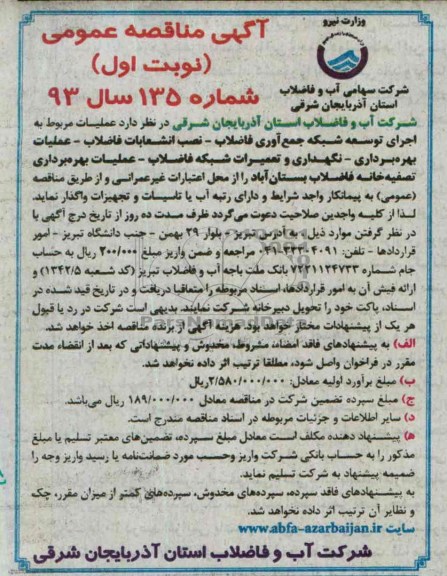 وزارت نیرو
شرکت سهامی آب و فاضلاب
استان آذربایجان شرقی
آگهی مناقصه عمومی
(نوبت اول)
شماره ۱۳۵ سال ۹۳
شرکت آب و فاضلاب استان آذربایجان شرقی در نظر دارد عملیات مربوط به
اجرای توسعه شبکه جمع‌آوری فاضلاب - نصب انشعابات فاضلاب - عملیات
بهره‌برداری - نگهداری و تعمیرات شبکه فاضلاب - عملیات بهره‌برداری
تصفیه‌خانه فاضلاب بستان‌آباد را از محل اعتبارات غیرعمرانی و از طریق مناقصه
(عمومی) به پیمانکار واجد شرایط و دارای رتبه آب یا تاسیسات و تجهیزات واگذار نماید.
لذا از کلیه واجدین صلاحیت دعوت می‌گردد ظرف مدت ده روز از تاریخ درج آگهی با
در نظر گرفتن موارد ذیل، به آدرس تبریز - بلوار ۲۹ بهمن - جنب دانشگاه تبریز - امور
قراردادها - تلفن: مراجعه و ضمن واریز مبلغ ۲۰۰/۰۰۰ ریال به حساب
جام شماره ۷۲۳۱۱۳۴۷۳۳ بانک ملت باجه آب و فاضلاب تبریز (کد شعبه ۱۳۴۲/۵) و
ارائه فیش آن به امور قراردادها، اسناد مربوطه را متعاقبا دریافت و در تاریخ قید شده در
اسناد، پاکت خود را تحویل دبیرخانه شرکت نمایند. بدیهی است شرکت در رد یا قبول
هر یک از پیشنهادات مختار خواهد بود. هزینه آگهی از برنده مناقصه اخذ خواهد شد.
الف) به پیشنهادهای فاقد امضاء، مشروط، مخدوش و پیشنهاداتی که بعد از انقضاء مدت
مقرر در فراخوان واصل شود، مطلقا ترتیب اثر داده نخواهد شد.
ب) مبلغ برآورد اولیه معادل: ۲/۵۸۰/۰۰۰/۰۰۰ریال
ج) مبلغ سپرده تضمین شرکت در مناقصه معادل ۱۸۹/۰۰۰/۰۰۰ ریال می‌باشد.
د) سایر اطلاعات و جزئیات مربوطه در اسناد مناقصه مندرج است.
ه) پیشنهاد دهنده مکلف است معادل مبلغ سپرده، تضمین‌های معتبر تسلیم یا مبلغ
مذکور را به حساب بانکی شرکت واریز وحسب مورد ضمانت‌نامه یا رسید واریز وجه را
ضمیمه پیشنهاد به شرکت تسلیم نماید.
به پیشنهادهای فاقد سپرده، سپرده‌های مخدوش، سپرده‌های کمتر از میزان مقرر، چک
و نظایر آن ترتیب اثر داده نخواهد شد.
سایت www.abfa-azarbaijan.ir
شرکت آب و فاضلاب استان آذربایجان شرقی